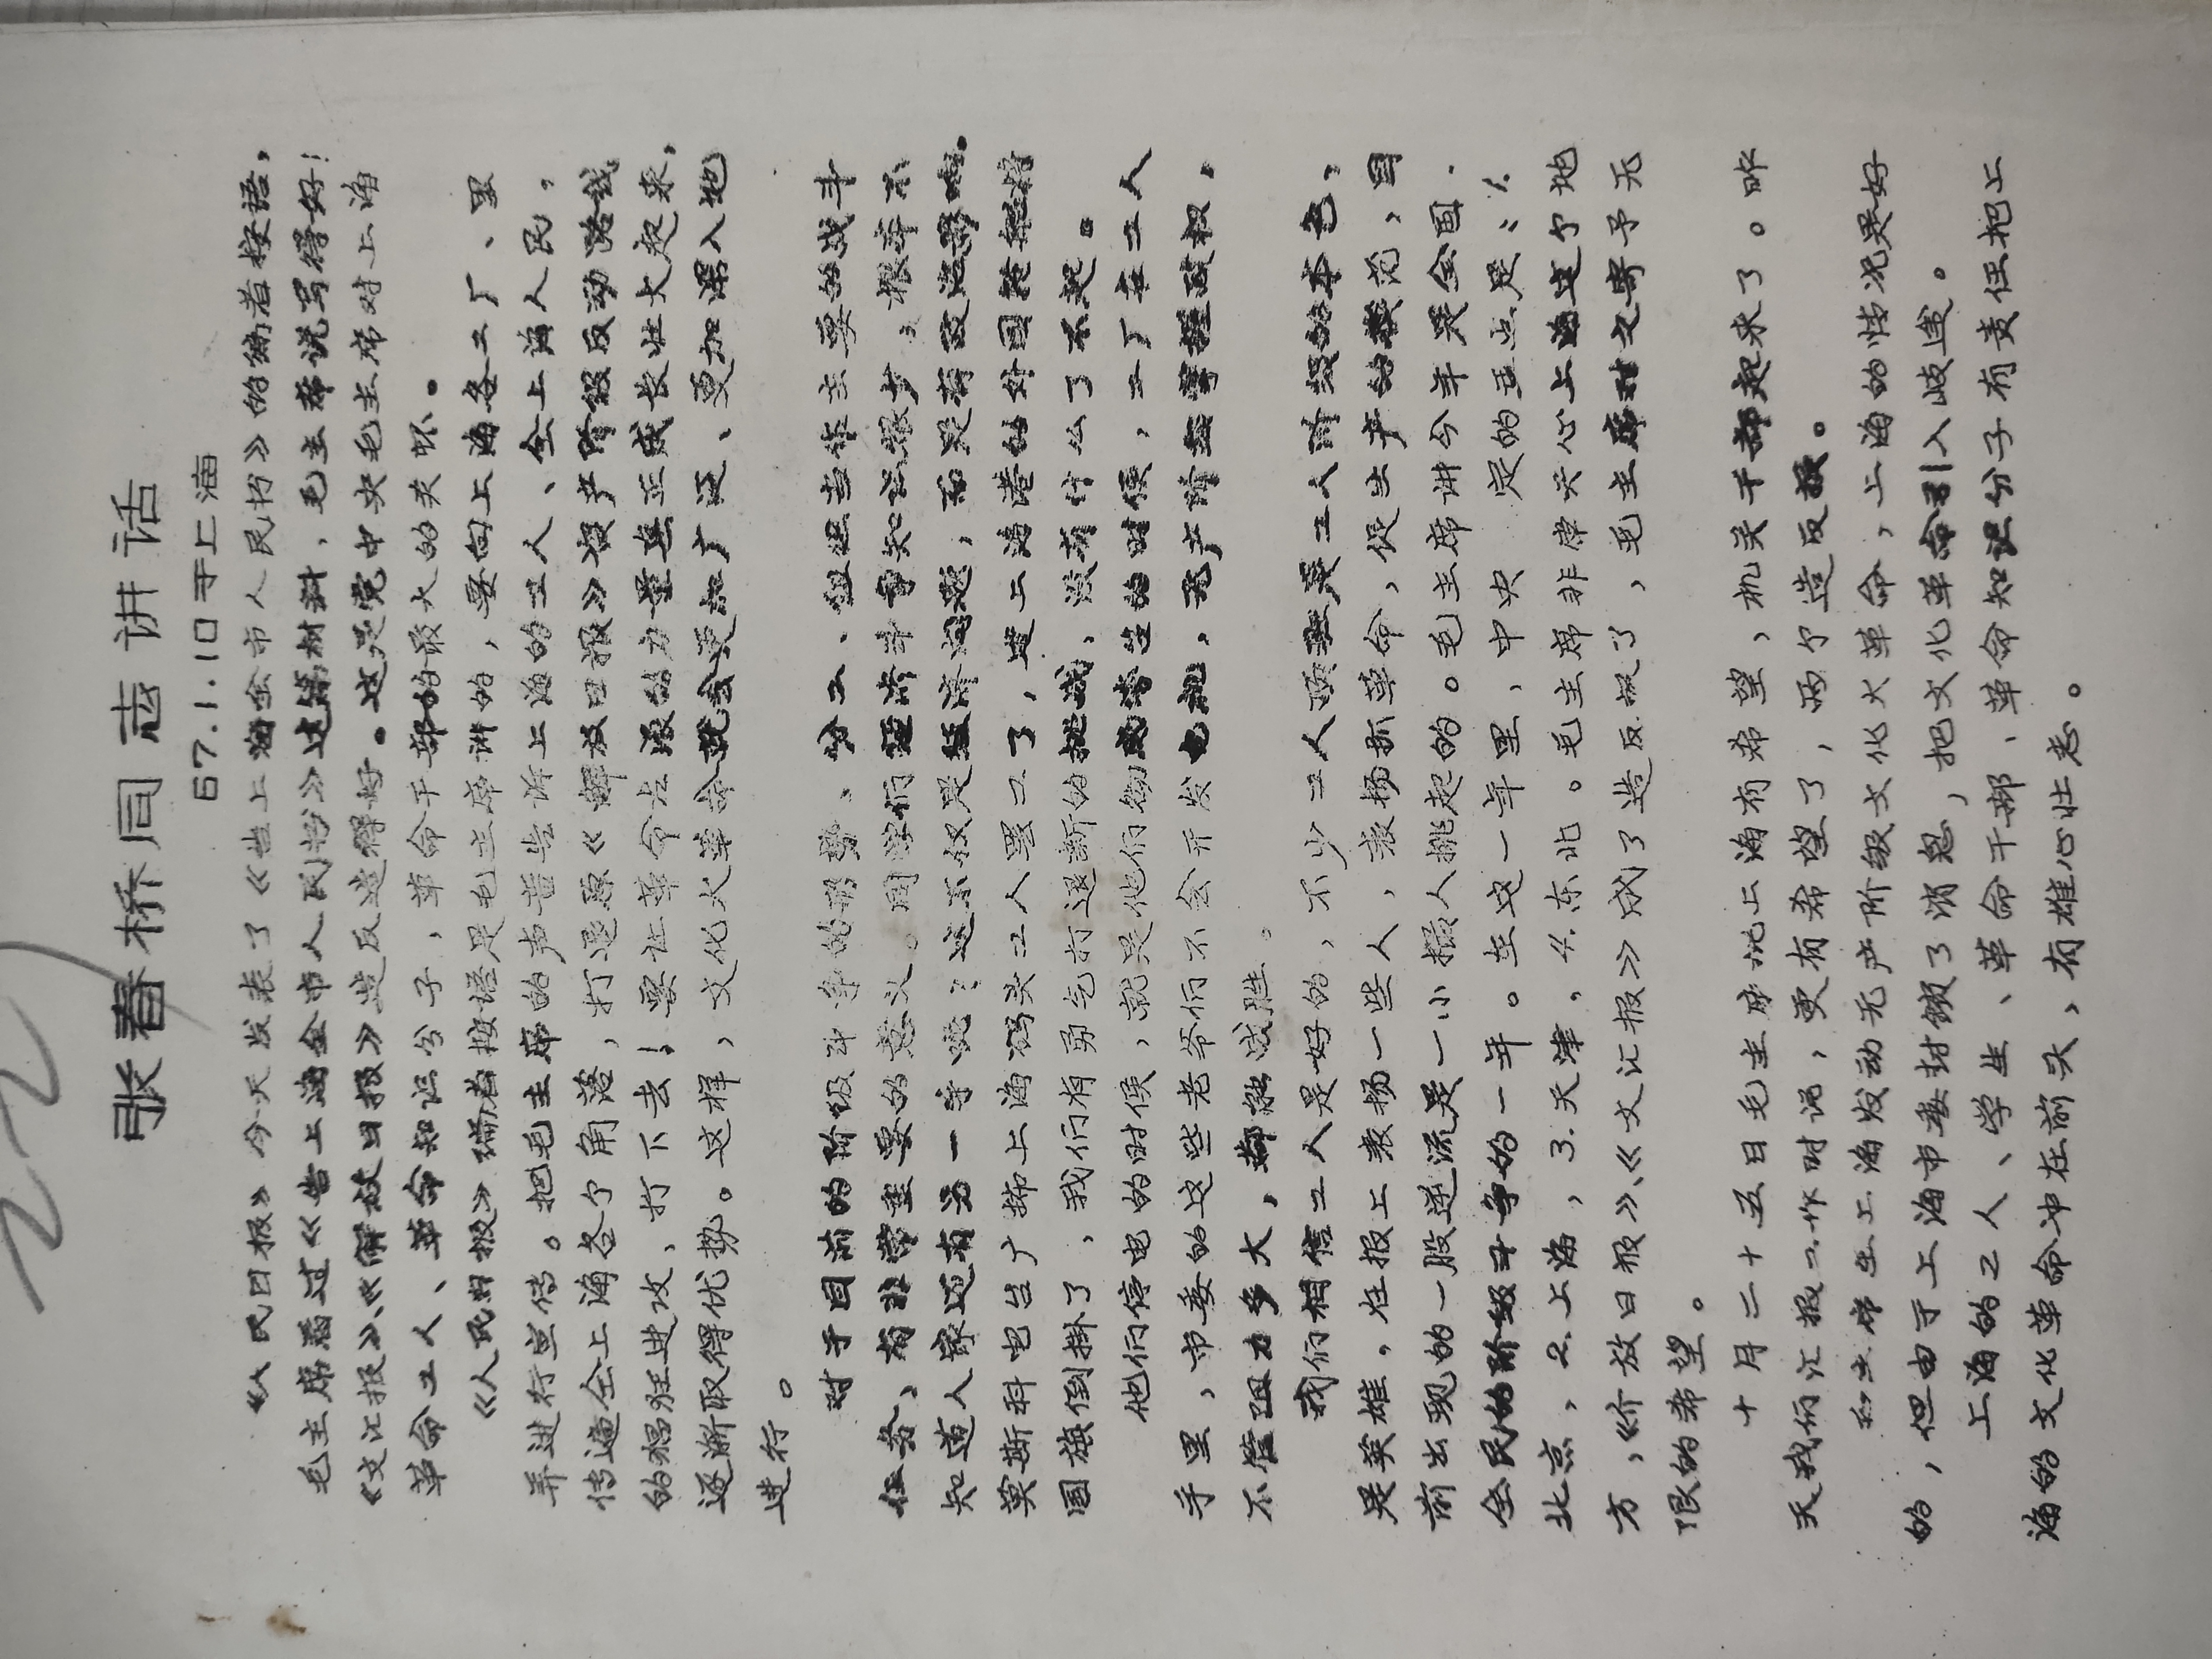 227
张春桥同志讲话
67.1.10于上海
《人民日报》今天发表了《告上海全市人民书》的编者按语，
毛主席看过《告上海全市人民书》这篇材料，毛主席说写得好！
《文汇报》、《解放日报》造反造得好。这是党中央毛主席对上海
革命工人、革命知识分子，革命干部的最大的关怀。
《人民日报》编者按语是毛主席讲的，要向上海各工厂、里
弄进行宣传。把毛主席的声音告诉上海的工人、全上海人民，
传遍全上海各个角落，打退原《解放日报》资产阶级反动路线
的猖狂进攻，打下去！要让革命左派的力量真正成长壮大起来，
逐渐取得优势。这样，文化大革命就会更加广泛、更加深入地
进行。
对于目前的阶级斗争的形势、分工、组织当作主要的战斗
任务，有非常重要的意义。同学们经济斗争知识很少，根本不
知道人家还有另一手呢？这不仅是经济问题，而是有政治影响。
莫斯科电台广播上海码头工人罢工了，进上海港的外国轮船将
国旗倒掛了，我们有勇气打退新的挑战，没有什么了不起。
他们停电的时候，就是他们彻底的时候，工厂在工人
手里，市委的这些老爷们不会开发电机，无产阶级掌握政权，
不管阻力多大，都能战胜。
我们相信工人是好的，不少工人顶班是工人阶级的本色，
是英雄。在报上表扬一些人，表扬抓革命，促生产的模范，目
前出现的一股逆流是一小撮人挑起的。毛主席讲今年是全国．
全民的阶级斗争的一年。在这一年里，中央 定的重点是：1.
北京，2.上海，3.天津，4.东北。毛主席非常关心上海这个地
方，《介放日报》、《文汇报》成了造反报了，毛主席对之寄予无
限的希望。
十月二十五日毛主席说上海有希望，机关干部起来了。昨
天我们汇报工作时说，更有希望了，两个造反报。
毛主席在上海发动无产阶级文化大革命，上海的情况是好
的，但由于上海市委封锁了消息，把文化革命引入岐途。
上海的工人、学生、革命干部、革命知识分子有责任把上
海的文化革命冲在前头，有雄心壮志。